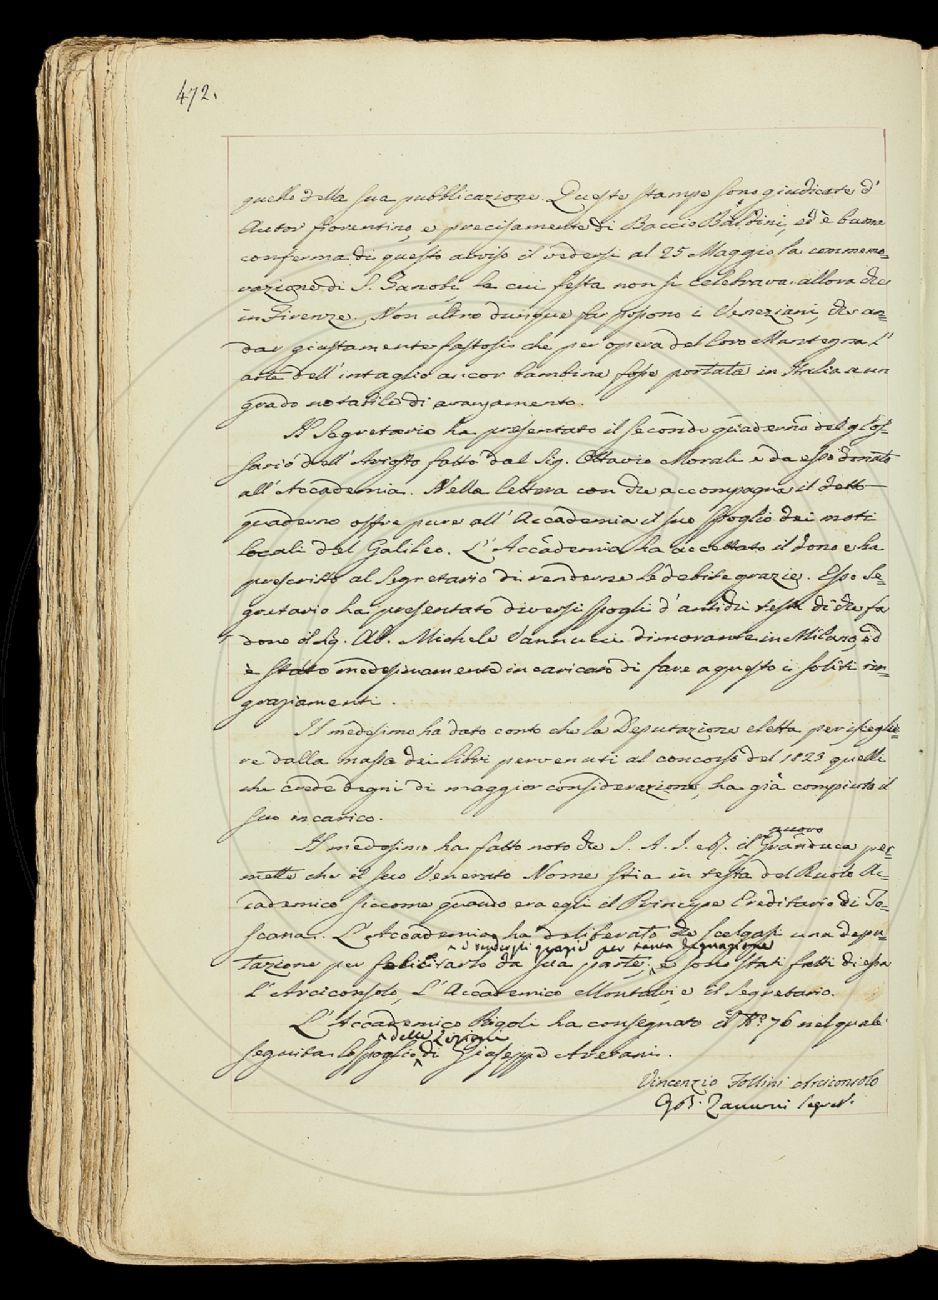 472.
quello della sua pubblicazione. Queste stampe sono giudicate d'
Autor fiorentino, e precisamente di Baccio Baldini, ed è buona
conferma di questo avviso il vedersi al 25 Maggio la commemo=
razione di S. Zanobi la cui festa non si celebrava allora che
in Firenze. Non altro dunque far possono i Veneziani, che an=
dar giustamente fastosi che per opera del loro Mantegna l'
arte dell'intaglio ancor bambina fosse portata in Italia a un
grado notabile di avanzamento.
Il Segretario ha presentato il secondo quaderno del glos=
sario dell'Ariosto fatto dal Sig. Ottavio Morali e da esso donato
all'Accademia. Nella lettera con che accompagna il detto
quaderno offre pure all'Accademia il suo spoglio dei moti
locali del Galileo. L'Accademia ha accettato il dono e ha
prescritto al Segretario di renderne le debite grazie. Esso Se=
gretario ha presentato diversi spogli d'antichi testi di che fa
dono il Sig. Ab. Michele Vannucci dimorante in Milano, ed
è stato medesimamente incaricato di fare a questo i soliti rin=
graziamenti.
Il medesimo ha dato conto che la Deputazione eletta per isceglie=
re dalla massa dei libri pervenuti al concorso del 1823 quelli
che crede degni di maggior considerazione, ha già compiuto il
suo incarico.
nuovo
Il medesimo ha fatto noto che S. A. I. e R. il Granduca per=
mette che il suo Venerato Nome stia in testa del Ruolo Ac=
cademico siccome quando era egli il Principe Ereditario di To=
scana. L'Accademia ha deliberato che scelgasi una depu=
e rendergli grazie per tanta degnazione
tazione per felicitarlo da sua parte; e sono stati fatti di essa
l'Arciconsolo, l'Accademico Montalvi, e il Segretario.
L'Accademico Rigoli ha consegnato il N.º 76 nel quale
delle Lezioni
seguita lo spoglio di Giuseppe Averani.
Vincenzio Follini Arciconsolo
Zannoni Segret.